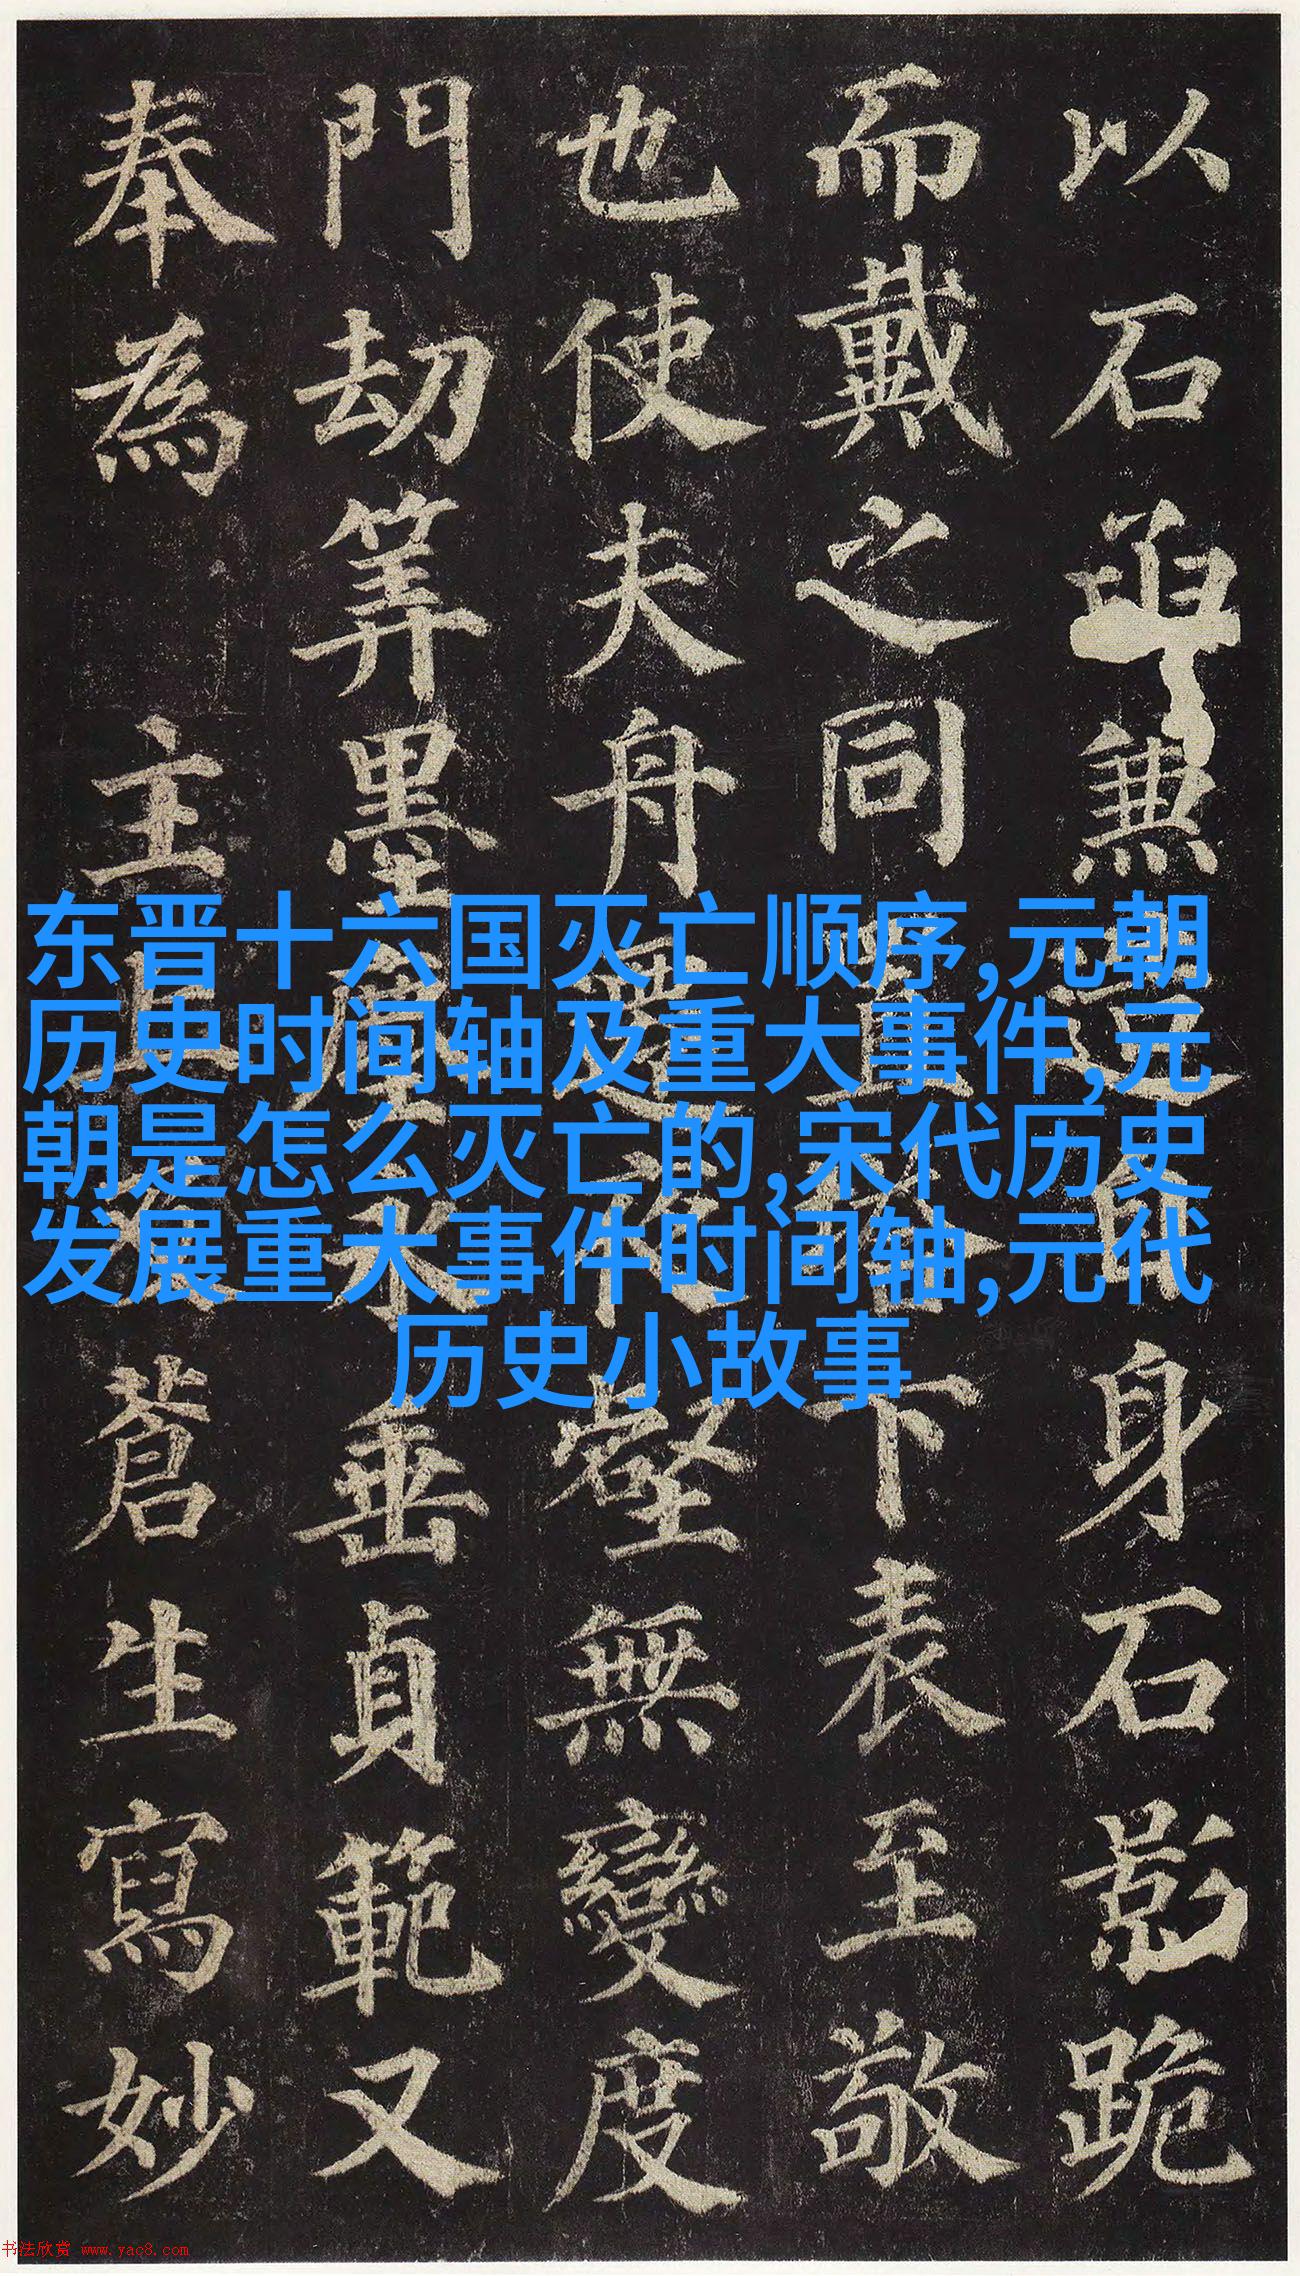 以石兼造自身石影跪
而戴之同置塔下表至敬
也使夫舟壑無變度
門劫筭墨塵永垂貞範又
奉為主蒼生寫妙
东晋十六国灭亡顺序,元朝
历史时间轴及重大事件,元
朝是怎么灭亡的,宋代历史
发展重大事件时间轴,元代
历史小故事
书法欣赏 www.yac8.com